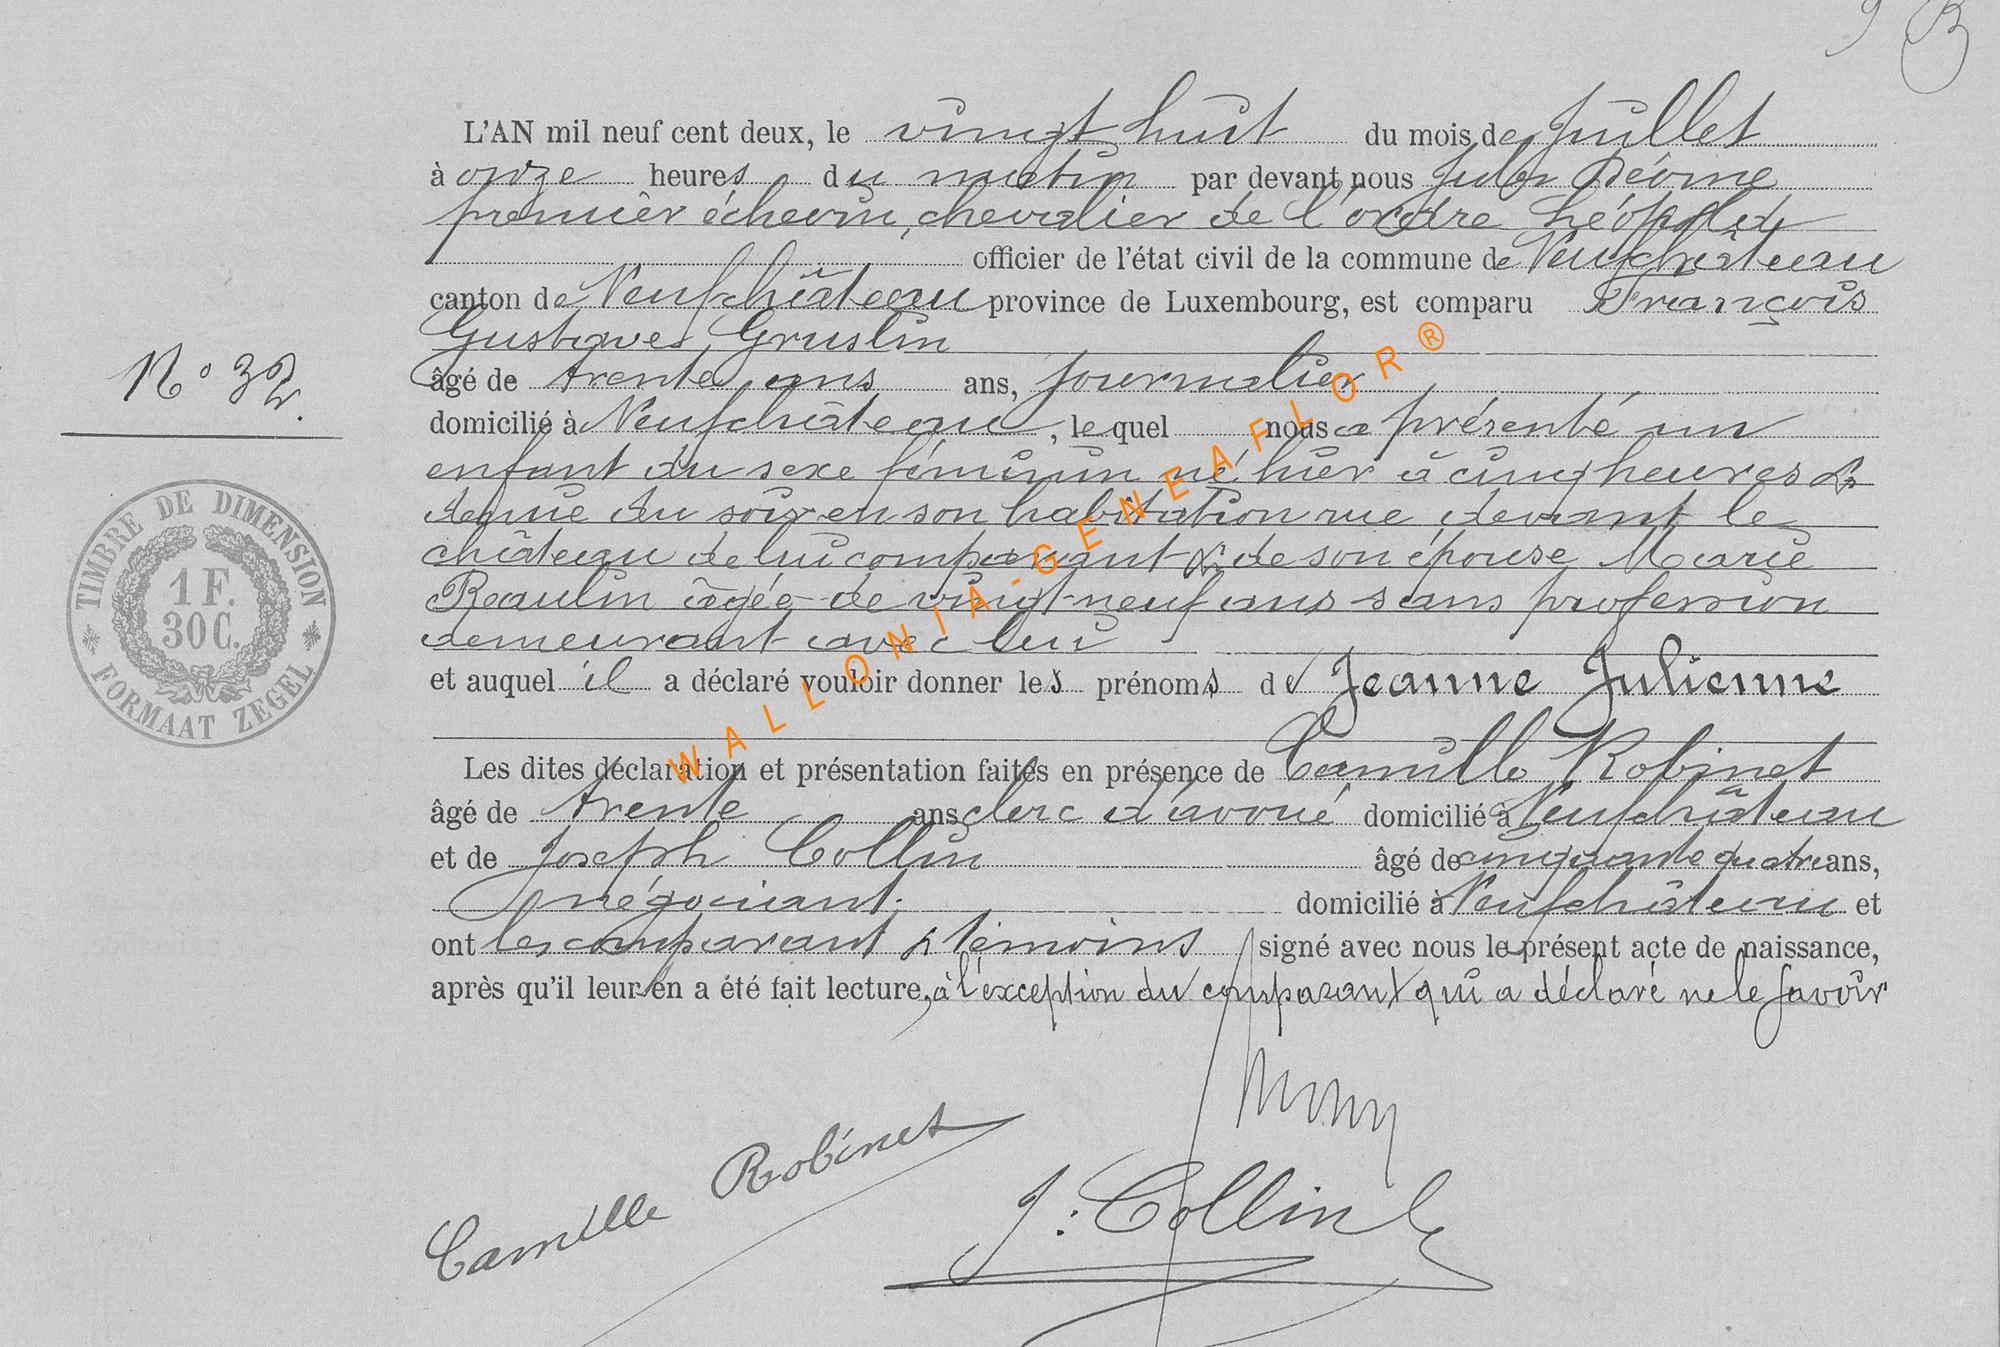 B
L'AN mil neuf cent deux, le vingt huit du mois de Juillet
à onze heures du matin par devant nous Jules
premier échevin, chevalier de l'ordre Léopold
officier de l'état civil de la commune de Neufchâteau
canton de Neufchâteau province de Luxembourg, est comparu François
Gustave Gruslin
N° 32.
âgé de trente ans ans, journalier
domicilié à Neufchâteau, lequel nous a présenté un
enfant du sexe féminin né hier à cinq heures &
demie du soir en son habitation rue devant le
château de lui comparant & de son épouse Marie
Raulin âgée de vingt-neuf ans sans profession
demeurant avec lui
et auquel il a déclaré vouloir donner les prénoms de Jeanne Julienne
Les dites déclaration et présentation faites en présence de Camille Robinet
âgé de trente ans clerc d'avoué domicilié à Neufchâteau
et de Joseph Collin âgé de cinquante quatre ans,
négociant. domicilié à Neufchâteau et
ont les comparant & témoins signé avec nous le présent acte de naissance,
après qu'il leur en a été fait lecture, à l'exception du comparant qui a déclaré ne le savoir
TIMBRE DE DIMENSION
1 F.
30 C.
FORMAAT ZEGEL
WALLONIA-GENEAFLOR®
Camille Robinet
J. Collin